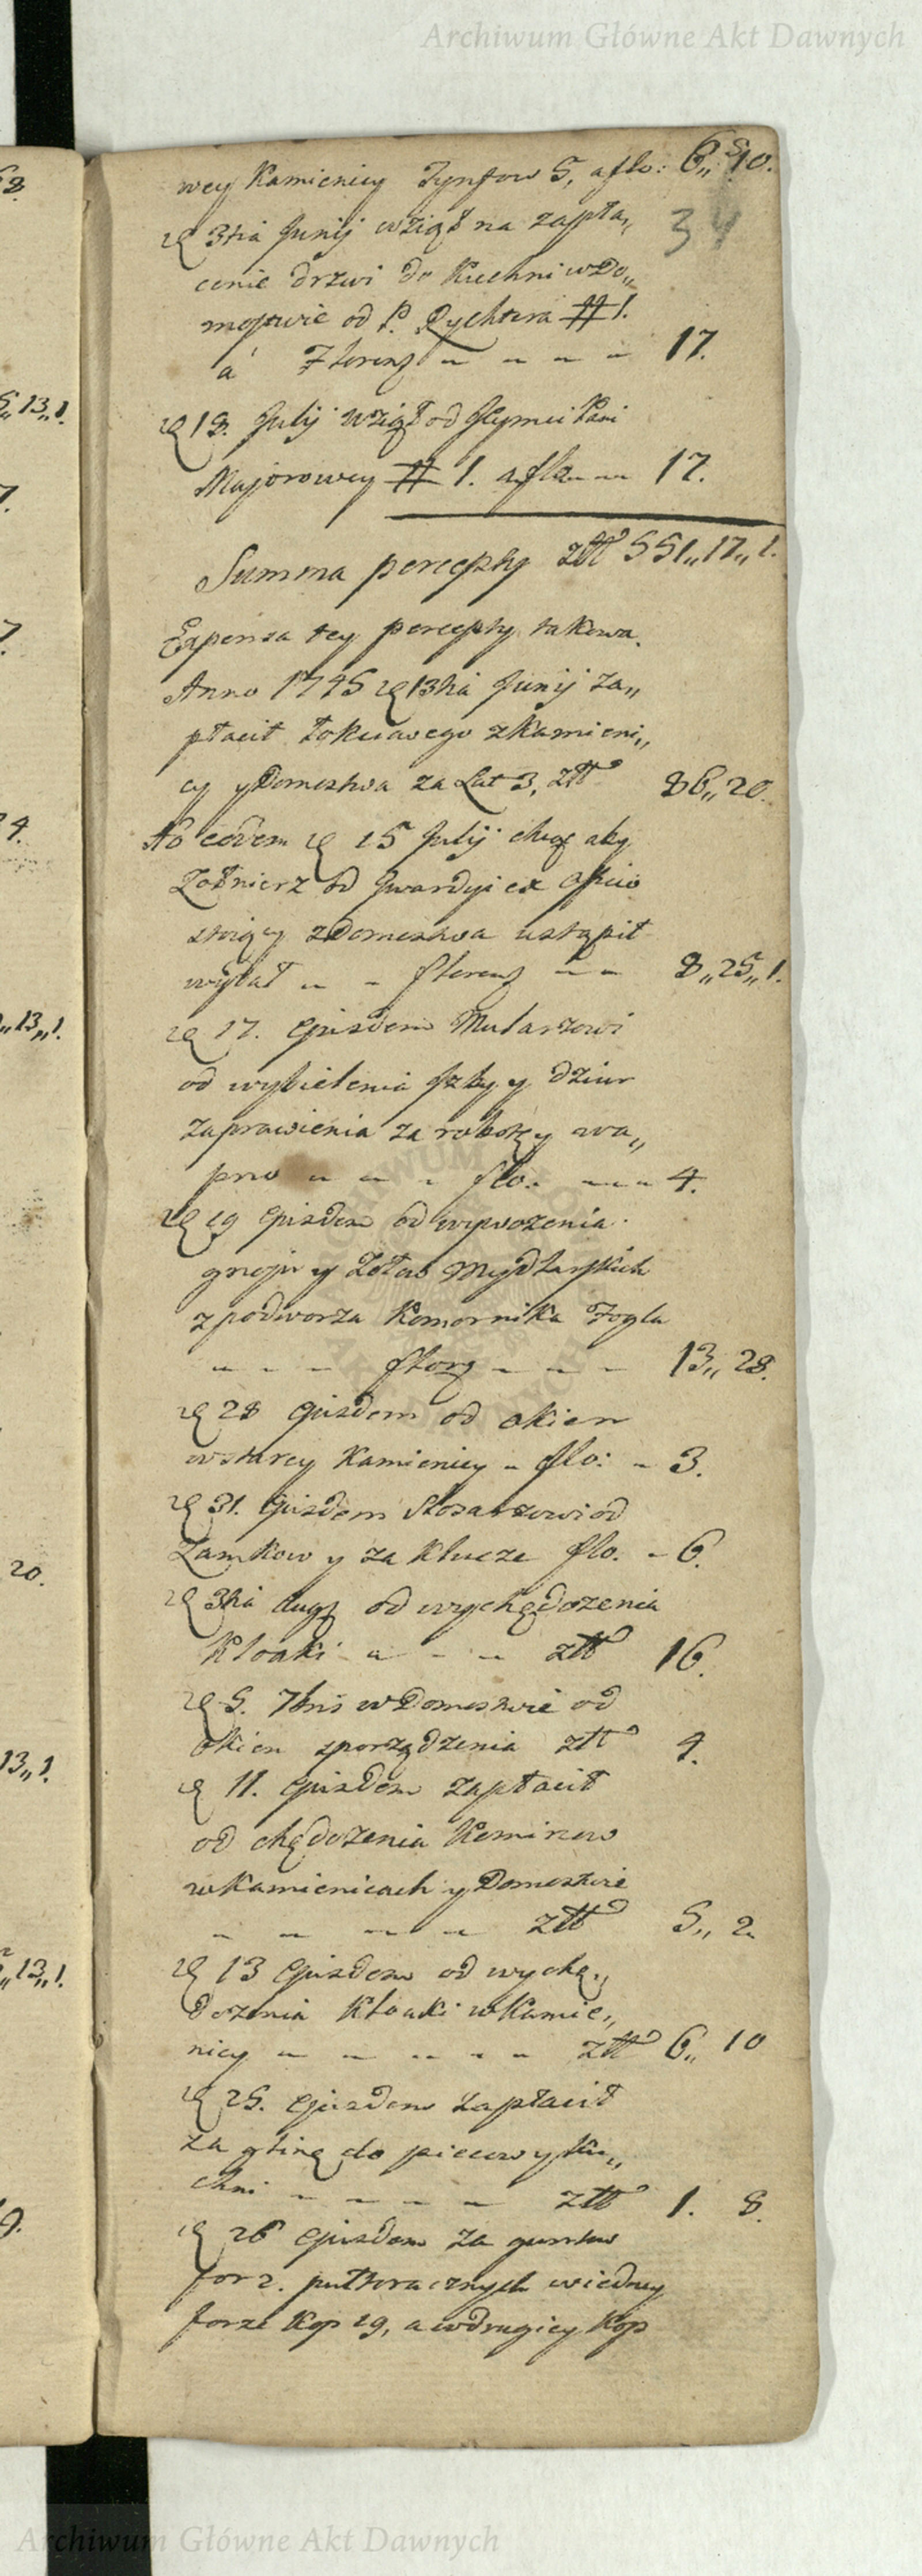 Archiwum Główne Akt Dawnych
wey Kamienicy Tynfow 5, a flo: 6,, 10.
34
D 3tia Junij wziął na zapła,,
cenie drzwi do Kuchni w Do,,
mostwie od P. Rychtera # 1.
á Florenz - - - - 17.
D 18. Julij wziął od Jeymci Pani
Majorowey # 1. a flo - - - 17.
Summa percepty złł 551,, 17,, 1.
Expensa tey percepty takowa.
Anno 1745 D 13tia Junij za,,
płacił Łokciowego z Kamieni,,
cy y Domostwa za Lat 3, złł 86,, 20.
Ao eodem D 15 Julij chcąc aby
Żołnierz od Gwardyi ex officio
stoiący z Domostwa ustąpił
wydał - - florenz - - 8,, 25,, 1.
D 17. Ejusdem Mularzowi
od wybielenia Izby y dziur
zaprawienia za robotę y wa,,
pno - - - flo. - - - 4.
D 19 Ejusdem od wywożenia
gnoju y Zołow Mydlarskich
z podworza Komornika Fogla
- - - florz - - - 13,, 28.
D 28 Ejusdem od okien
w starey Kamienicy - flo: - 3.
D 31. Ejusdem Slosarzowi od
Zamkow y za Klucze flo. - 6.
D 3tia Augz od wychędożenia
Kloaki - - - złł 16.
D 5. 7bris w Domostwie od
okien sporządzenia złł 4.
D 11. Ejusdem zapłacił
od chędożenia Kominow
w Kamienicach y Domostwie
- - - - złł 5,, 2.
D 13 Ejusdem od wychę,,
dożenia Kloaki w Kamie,,
nicy - - - - - złł 6,, 10
D 25. Ejusdem zapłacił
za glinę do piecow y Ku,,
chni - - - - złł 1. 8.
D 26 Ejusdem za
for 2. połtoracznych w iedney
forze Kop 19, a w drugiey Kop
Archiwum Główne Akt Dawnych